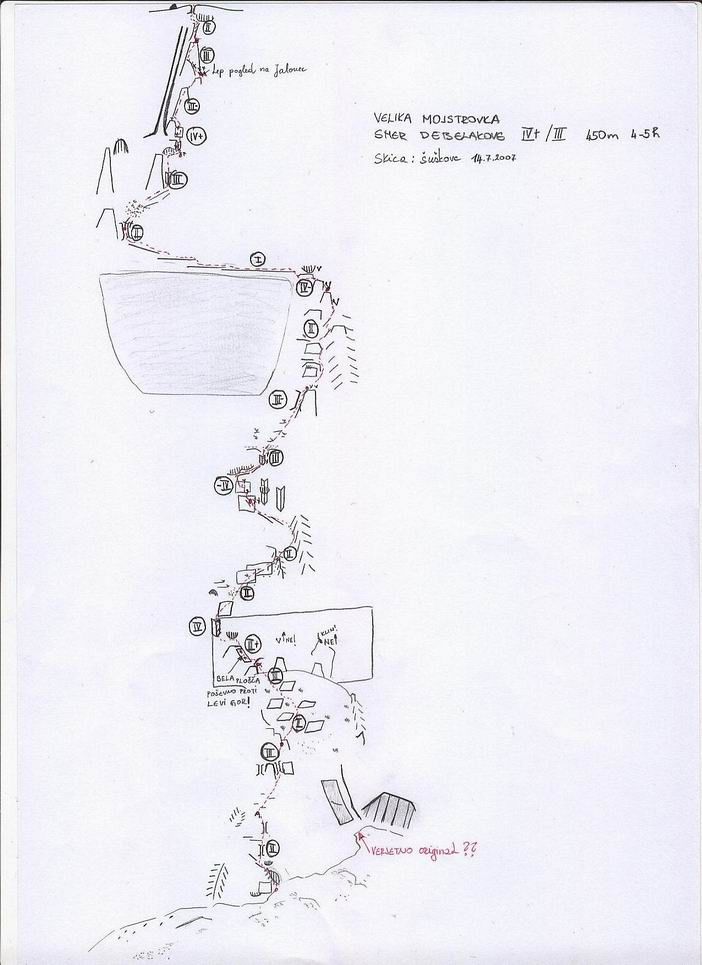 II
III
Lep pogled na Jalovec
III-
IV+
III
II
I
IV-
II
III-
III
-IV
II
II
IV
II+
V NE!
KLIN!
NE!
III
BELA PLOŠČA
POŠEVNO PROTI
LEVI GOR!
I
III
II
VERJETNO original ??
VELIKA MOJSTROVKA
SMER DEBELAKOVE IV+/III 450m 4-5h
Skica: Šuškove 14.7.2007